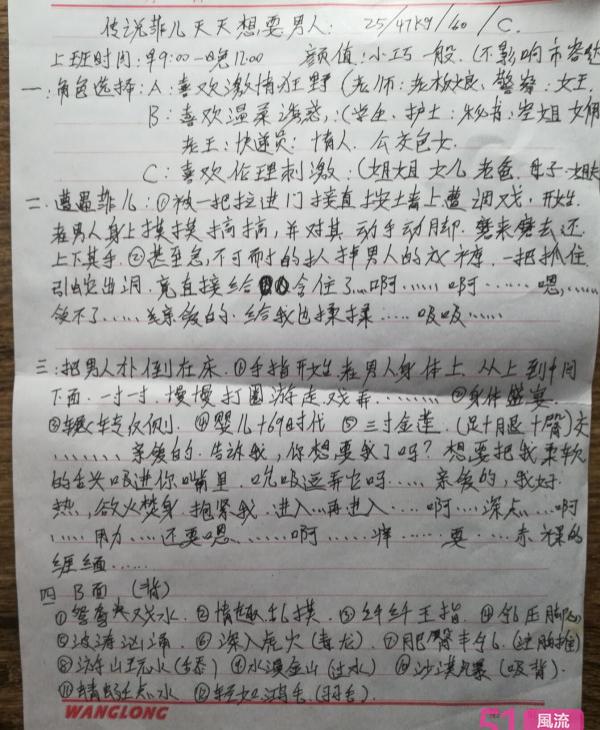 传说菲儿天天想要男人: 25/47kg/60/C.
上班时间:早9:00一晚12:00 颜值:小巧一般.(不影响市容
一:角色选择:A:喜欢激情狂野(老师:老板娘、警察:女王.
B:喜欢温柔诱惑:(学生、护士:秘书:空姐 女
老王:快递员:情人.公交包女.
C:喜欢伦理刺激:(姐姐 女儿 老爸.母子
二.遭遇菲儿:①被一把拉进门接直按土墙上遭调戏,开始
在男人身上摸摸搞搞,并对其动手动脚.磨来磨去还
上下其手.②甚至急不可耐的扒掉男人的衣裤.一把抓住
引蛇出洞.竟直接给 含住了…啊…… 啊…… 嗯,……
受不了……亲爱的.给我也揉揉…… 吸吸……
三:把男人扑倒在床.①手指开始在男人身体上.从上到中间
下面.一寸一寸.慢慢打圈游走戏弄……… ②身体盛宴.
③辗转反侧. ④婴儿+69时代 ⑤三寸金莲.(足+月退+臀)交
………亲爱的.告诉我,你想要我了吗?想要把我柔软
的舌尖吸进你嘴里.吮吸逗弄它吗……亲爱的,我好
热,欲火焚身.抱紧我.进入…再进入……啊…深点…啊
……用力…还要嗯……啊……痒……要…赤裸的
缠绵……
四 B面 (背)
①鸳鸯戏水.②情趣乱摸.③纤纤玉指.④
⑤波涛汹涌 ⑥深入虎穴(毒龙).⑦肥臀丰乳.
⑧游山玩水(舔)⑨水漫金山(过水)⑩沙漠风暴(吸背).
⑪蜻蜓点水 ⑫轻如鸿毛.(羽毛).
WANGLONG
51 風流